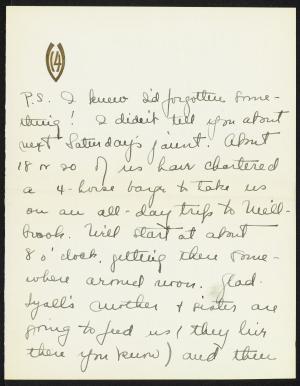 P.S. I knew I'd forgotten some-
thing! I didn't tell you about
next Saturday's jaunt. About
18 or 20 of us have chartered
a 4-horse barge to take us
on an all-day trip to Mill-
brook. We'll start at about
8 o'clock, getting there some-
where around noon. Glad
Lyall's mother & sister are
going to feed us (they live
there you know) and then